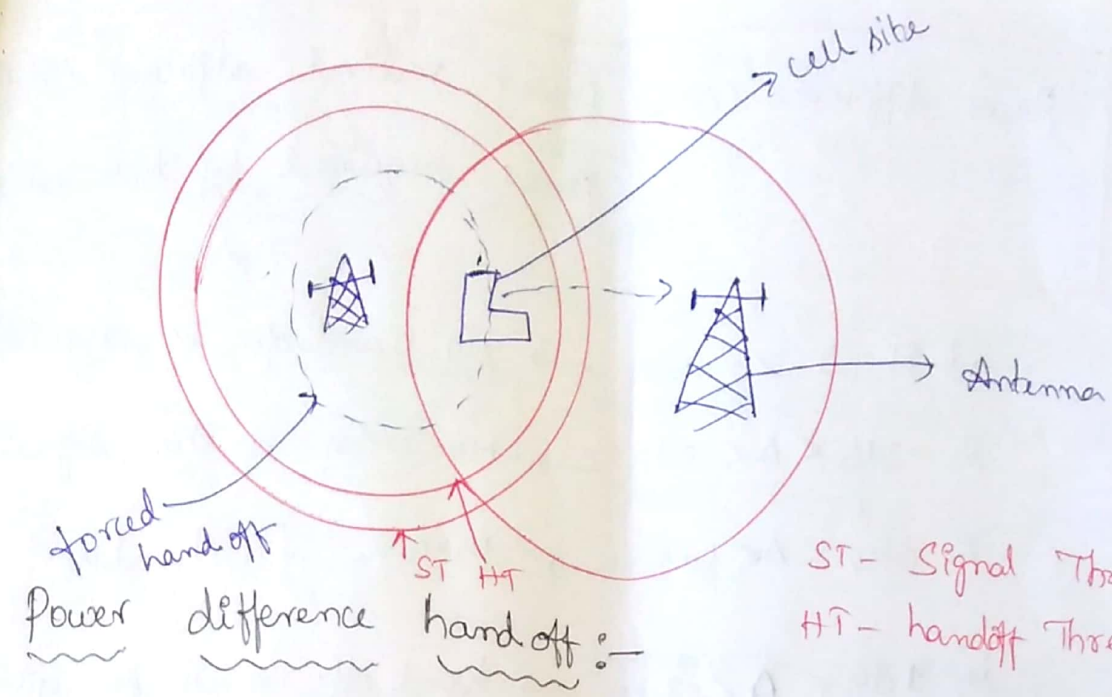 cell site
Antenna
forced
hand off
ST HT
ST - Signal Thre
HT - handoff Thre
Power difference hand off :-